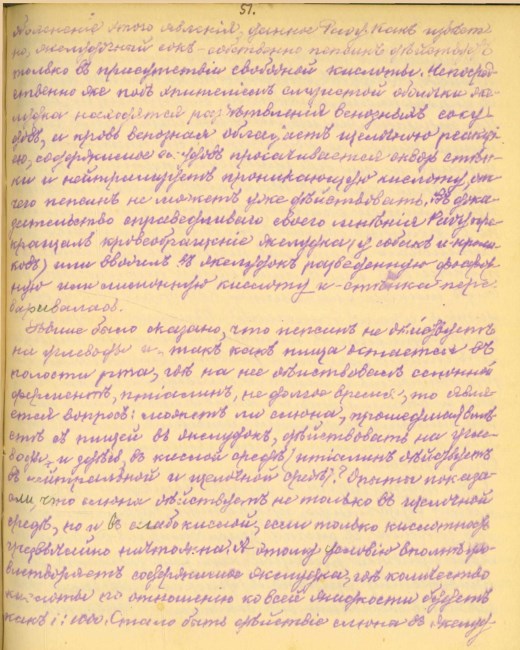 51.
объясненіе этого явленія, данное Pavy. Какъ извѣст-
но, желудочный сокъ - собственно пепсинъ дѣйствуетъ
только въ присутствіи свободной кислоты. Непосред-
ственно же подъ эпителіемъ слизистой оболочки же-
лудка находятся развѣтвленія венозныхъ сосу-
довъ, и кровь венозная обладаетъ щелочною реакці-
ею, содержимое сосудовъ просачивается сквозь стѣн-
ки и нейтрализуетъ проникающую кислоту, от-
чего пепсинъ не можетъ уже дѣйствовать. Въ дока-
зательство справедливаго своего мнѣнія Pavy пре-
кращалъ кровеобращеніе желудка (у собакъ и кроли-
ковъ) или вводилъ въ желудокъ разведенную фосфор-
ную или лимонную кислоту и - стѣнка пере-
варивалась.
Выше было сказано, что пепсинъ не дѣйствуетъ
на углеводы и - такъ какъ пища остается въ
полости рта, гдѣ на нее дѣйствовалъ слюнной
ферментъ, птіалинъ, не долгое время, то являе-
тся вопросъ: можетъ ли слюна, прошедшая вмѣ-
стѣ съ пищей въ желудокъ, дѣйствовать на угле-
воды и здѣсь, въ кислой средѣ (птіалинъ дѣйствуетъ
въ нейтральной и щелочной средѣ)? Опыты показа-
ли, что слюна дѣйствуетъ не только въ щелочной
средѣ, но и въ слабокислой, если только кислотность
чрезвычайно ничтожна. А этому условію вполнѣ удо-
влетворяетъ содержимое желудка, гдѣ количество
кислоты по отношенію ко всей жидкости будетъ
какъ 1:1000. Стало быть дѣйствіе слюны въ желуд-